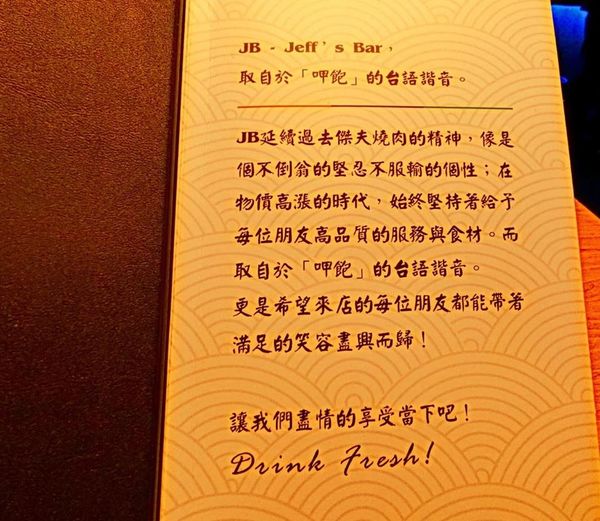 JB - Jeff's Bar，
取自於「呷飽」的台語諧音。
JB延續過去傑夫燒肉的精神，像是
個不倒翁的堅忍不服輸的個性；在
物價高漲的時代，始終堅持著給予
每位朋友高品質的服務與食材。而
取自於「呷飽」的台語諧音。
更是希望來店的每位朋友都能帶著
滿足的笑容盡興而歸！
讓我們盡情的享受當下吧！
Drink Fresh!